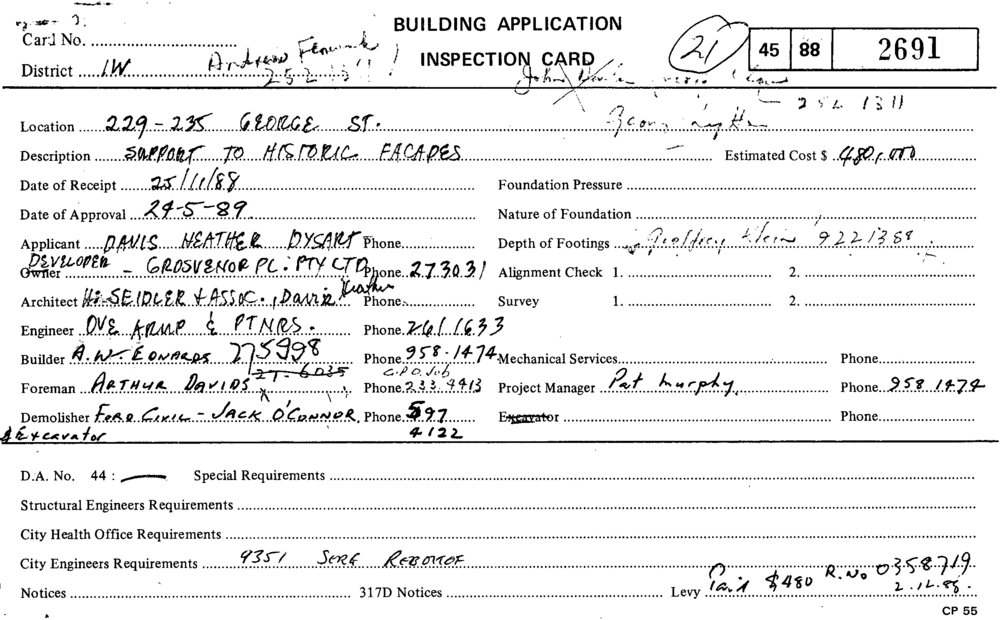 BUILDING APPLICATION
INSPECTION CARD
21 45 88 2691
Card No.
District IW. Andrew Fenwick
252 1311
John
George Smyth 252 1311
Location 229-235 GEORGE ST.
Description SUPPORT TO HISTORIC FACADES Estimated Cost $ 480,000
Date of Receipt 25/11/88 Foundation Pressure
Date of Approval 24-5-89 Nature of Foundation
Applicant DAVIS HEATHER DYSART Phone Depth of Footings Geoffrey Klein 922 1388
DEVELOPER
Owner - GROSVENOR PL. PTY LTD Phone. 273031 Alignment Check 1. 2.
Architect H. SEIDLER & ASSOC., David Heather Phone Survey 1. 2.
Engineer OVE ARUP & PTNRS. Phone. 261 1633
Builder A.W. EDWARDS 275998 Phone. 958.1474 Mechanical Services Phone
27-6035 G.P.O. Job
Foreman ARTHUR DAVIDS Phone 233 4413 Project Manager Pat Murphy Phone. 958 1474
Demolisher FORD CIVIL - JACK O'CONNOR Phone. 597 Excavator Phone
& Excavator 4122
D.A. No. 44 : — Special Requirements
Structural Engineers Requirements
City Health Office Requirements
City Engineers Requirements 9351 SERG
Notices 317D Notices Levy Paid $480 R. No 0358719
2.12.88.
CP 55